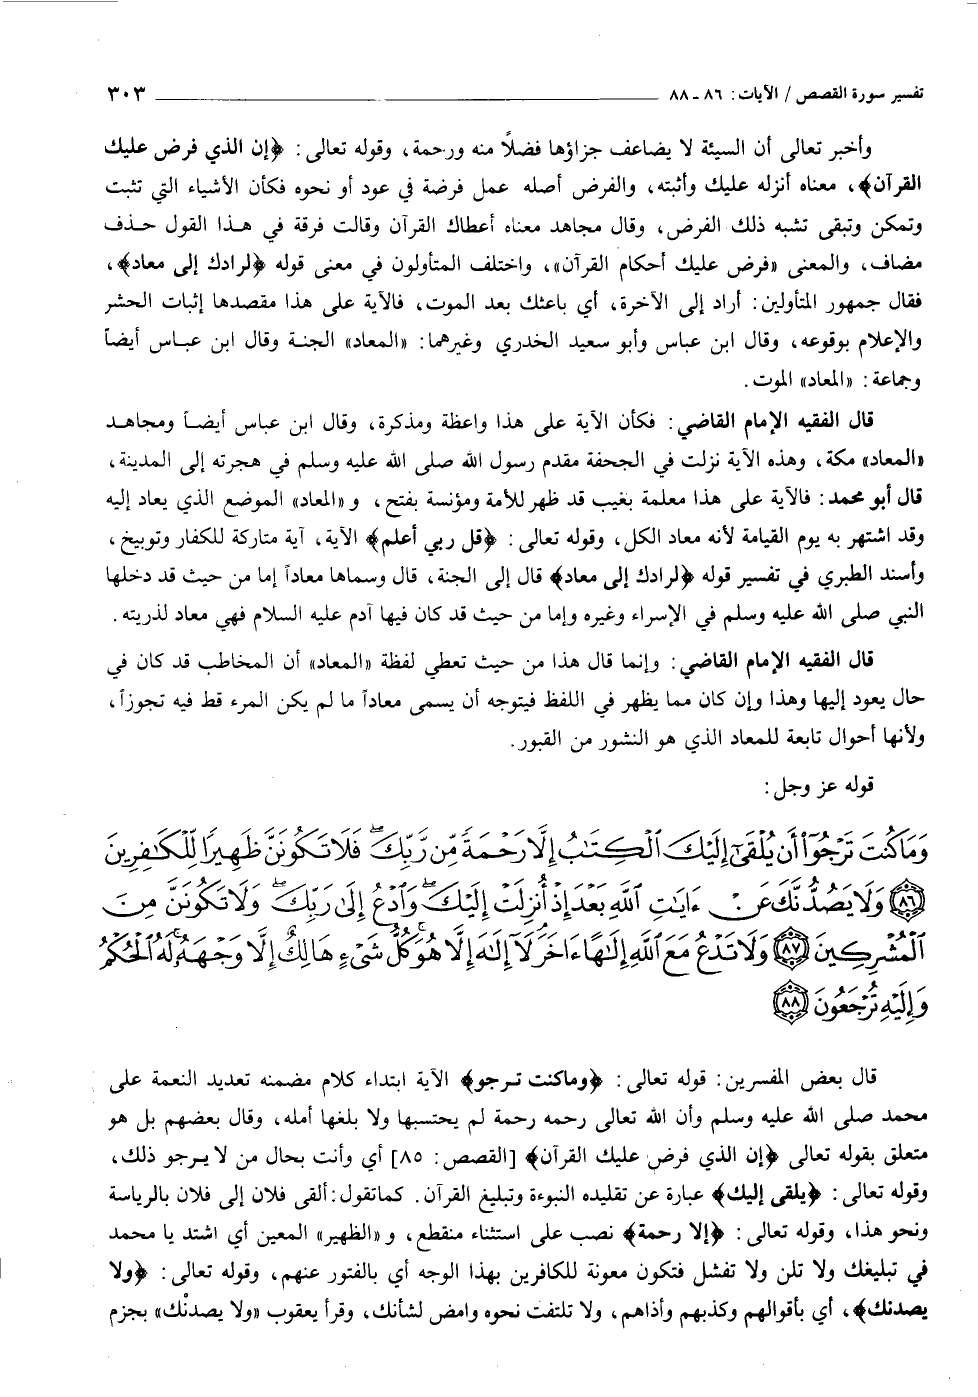 تفسير سورة القصص / الآيات : ٨٦ ـ ٨٨ ٣٠٣
وأخبر تعالى أن السيئة لا يضاعف جزاؤها فضلاً منه ورحمة، وقوله تعالى : ﴿إن الذي فرض عليك
القرآن﴾، معناه أنزله عليك وأثبته، والفرض أصله عمل فرضة في عود أو نحوه فكأن الأشياء التي تثبت
وتمكن وتبقى تشبه ذلك الفرض، وقال مجاهد معناه أعطاك القرآن وقالت فرقة في هذا القول حذف
مضاف، والمعنى «فرض عليك أحكام القرآن»، واختلف المتأولون في معنى قوله ﴿لرادك إلى معاد﴾،
فقال جمهور المتأولين : أراد إلى الآخرة، أي باعثك بعد الموت، فالآية على هذا مقصدها إثبات الحشر
والإعلام بوقوعه، وقال ابن عباس وأبو سعيد الخدري وغيرهما : «المعاد» الجنة وقال ابن عباس أيضاً
وجماعة : «المعاد» الموت.
قال الفقيه الإمام القاضي : فكأن الآية على هذا واعظة ومذكرة، وقال ابن عباس أيضاً ومجاهد
«المعاد» مكة، وهذه الآية نزلت في الجحفة مقدم رسول الله صلى الله عليه وسلم في هجرته إلى المدينة،
قال أبو محمد : فالآية على هذا معلمة بغيب قد ظهر للأمة ومؤنسة بفتح، و «المعاد» الموضع الذي يعاد إليه
وقد اشتهر به يوم القيامة لأنه معاد الكل، وقوله تعالى : ﴿قل ربي أعلم﴾ الآية، آية متاركة للكفار وتوبيخ،
وأسند الطبري في تفسير قوله ﴿لرادك إلى معاد﴾ قال إلى الجنة، قال وسماها معاداً إما من حيث قد دخلها
النبي صلى الله عليه وسلم في الإسراء وغيره وإما من حيث قد كان فيها آدم عليه السلام فهي معاد لذريته.
قال الفقيه الإمام القاضي : وإنما قال هذا من حيث تعطي لفظة «المعاد» أن المخاطب قد كان في
حال يعود إليها وهذا وإن كان مما يظهر في اللفظ فيتوجه أن يسمى معاداً ما لم يكن المرء قط فيه تجوزاً،
ولأنها أحوال تابعة للمعاد الذي هو النشور من القبور.
قوله عز وجل :
وَمَا كُنتَ تَرْجُوٓا۟ أَن يُلْقَىٰٓ إِلَيْكَ ٱلْكِتَٰبُ إِلَّا رَحْمَةً مِّن رَّبِّكَ ۖ فَلَا تَكُونَنَّ ظَهِيرًا لِّلْكَٰفِرِينَ
﴿٨٦﴾ وَلَا يَصُدُّنَّكَ عَنْ ءَايَٰتِ ٱللَّهِ بَعْدَ إِذْ أُنزِلَتْ إِلَيْكَ ۖ وَٱدْعُ إِلَىٰ رَبِّكَ ۖ وَلَا تَكُونَنَّ مِنَ
ٱلْمُشْرِكِينَ ﴿٨٧﴾ وَلَا تَدْعُ مَعَ ٱللَّهِ إِلَٰهًا ءَاخَرَ ۘ لَآ إِلَٰهَ إِلَّا هُوَ ۚ كُلُّ شَىْءٍ هَالِكٌ إِلَّا وَجْهَهُۥ ۚ لَهُ ٱلْحُكْمُ
وَإِلَيْهِ تُرْجَعُونَ ﴿٨٨﴾
قال بعض المفسرين : قوله تعالى : ﴿وماكنت ترجو﴾ الآية ابتداء كلام مضمنه تعديد النعمة على
محمد صلى الله عليه وسلم وأن الله تعالى رحمه رحمة لم يحتسبها ولا بلغها أمله، وقال بعضهم بل هو
متعلق بقوله تعالى ﴿إن الذي فرض عليك القرآن﴾ [القصص : ٨٥] أي وأنت بحال من لا يرجو ذلك،
وقوله تعالى : ﴿يلقى إليك﴾ عبارة عن تقليده النبوءة وتبليغ القرآن. كماتقول : ألقى فلان إلى فلان بالرياسة
ونحو هذا، وقوله تعالى : ﴿إلا رحمة﴾ نصب على استثناء منقطع، و «الظهير» المعين أي اشتد يا محمد
في تبليغك ولا تلن ولا تفشل فتكون معونة للكافرين بهذا الوجه أي بالفتور عنهم، وقوله تعالى : ﴿ولا
يصدنك﴾، أي بأقوالهم وكذبهم وأذاهم، ولا تلتفت نحوه وامض لشأنك، وقرأ يعقوب «ولا يصدنْك» بجزم